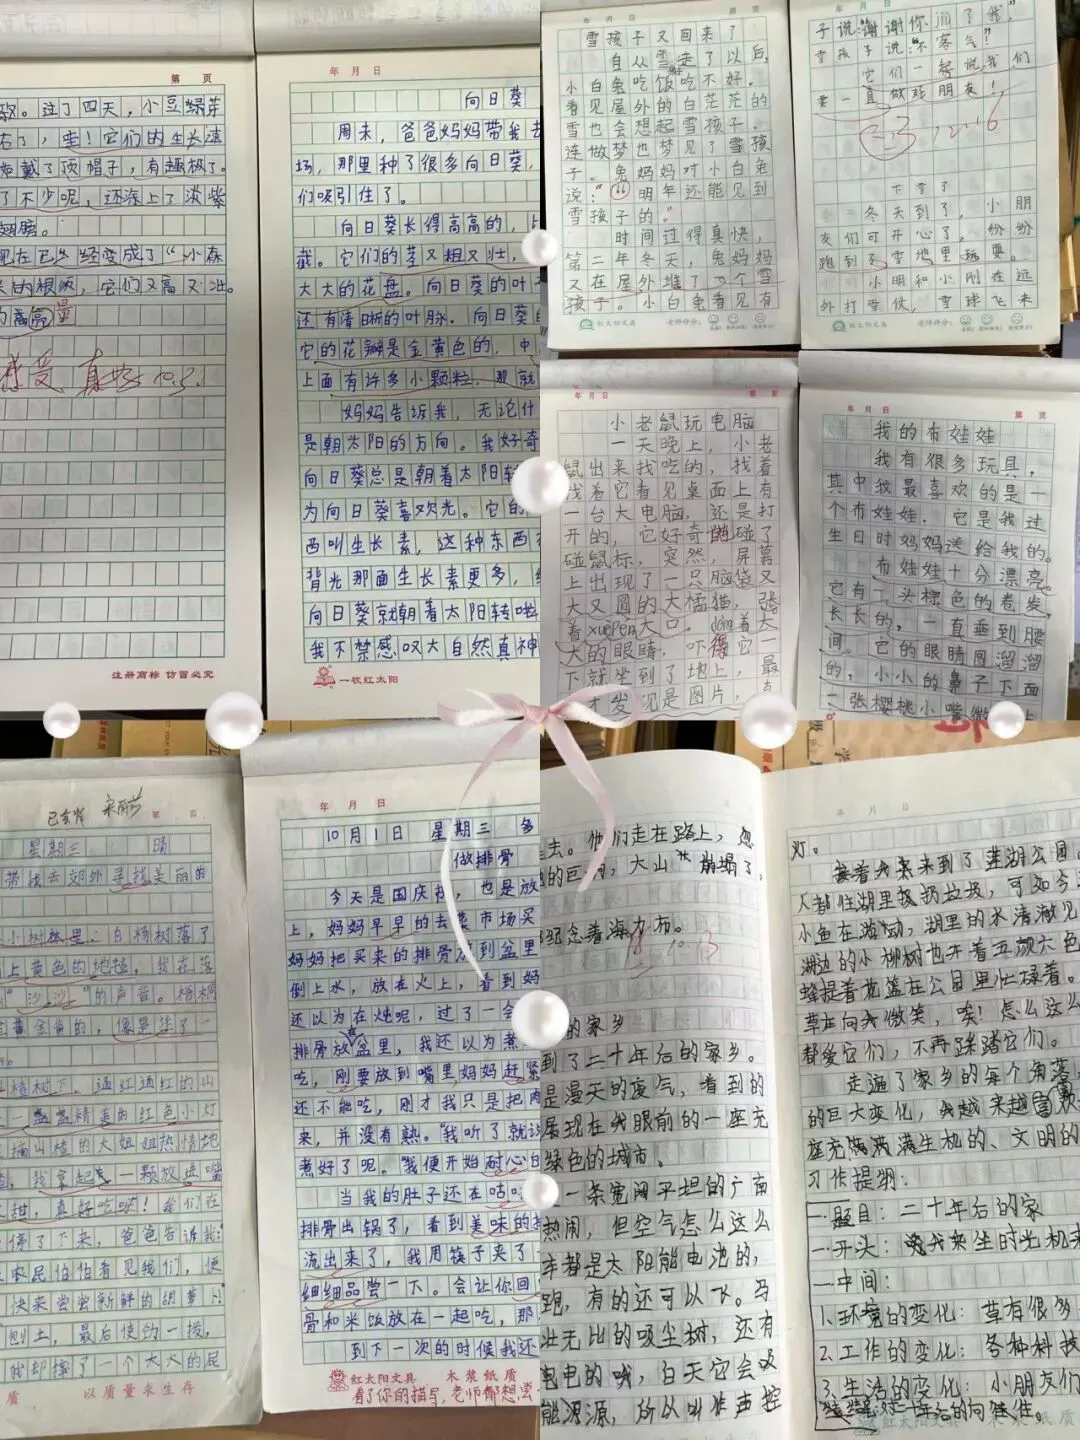 第 页
过了四天，小豆绿芽
了，哇！它们的生长速
戴了顶帽子，有趣极了。
了不少呢，还涂上了淡紫
翅膀。
现在已经变成了“小森
的根须，它们又高又壮。
注册商标 仿冒必究
年 月 日
向日葵
周末，爸爸妈妈带我去
场，那里种了很多向日葵，
们吸引住了。
向日葵长得高高的，
截。它们的茎又粗又壮，
大大的花盘。向日葵的叶
还有清晰的叶脉。向日葵
它的花瓣是金黄色的，中
上面有许多小颗粒，那就
妈妈告诉我，无论什
是朝太阳的方向。我好奇
向日葵总是朝着太阳转
为向日葵喜欢光。它的
西叫生长素，这种东西
背光那面生长素更多，
向日葵就朝着太阳转啦
我不禁感叹大自然真神
一牧红太阳
年 月 日
雪孩子又回来了
自从雪孩子走了以后，
小白兔吃饭吃不好。
看见屋外的白茫茫的
雪也会想起雪孩子。
连做梦也梦见了雪孩
子。兔妈妈对小白兔
说：“明年还能见到
雪孩子的。”
时间过得真快，
第二年冬天，兔妈妈
又在屋外堆了个雪
孩子。小白兔看见有
红太阳文具 老师评分：
年 月 日 第 页
子说：“谢谢你们了我，”
雪孩子说：“不客气！”
它们一起说我们
要一直做好朋友！
12.16
下雪了
冬天到了，小朋
友们可开心了，纷纷
跑到了雪地里玩耍。
小明和小刚在远
外打雪仗，雪球飞来
红太阳文具 老师评分：
年 月 日
小老鼠玩电脑
一天晚上，小老
鼠出来找吃的，找着
找着它看见桌面上有
一台大电脑，还是打
开的，它好奇地碰了
碰鼠标，突然，屏幕
上出现了一只脑袋又
大又圆的大橘猫，张
着xuèpén大口，dèng着大
大的眼睛，吓得它一
下就坐到了地上，最
才发现是图片，
年 月 日 第 页
我的布娃娃
我有很多玩具，
其中我最喜欢的是一
个布娃娃。它是我过
生日时妈妈送给我的。
布娃娃十分漂亮。
它有一头棕色的卷发，
长长的，一直垂到腰
间。它的眼睛圆溜溜
的，小小的鼻子下面
一张樱桃小嘴微微上
星期三 晴
带我去郊外寻找美丽的
小树林里：白杨树落了
上黄色的地毯，我在落
“沙沙”的声音。梧桐
黄金黄的，像是挂了一
楂树下，通红通红的山
一盏盏精美的红色小灯
摘山楂的大姐姐热情地
我拿起一颗放进嘴
甜，真好吃呀！我们在
停了下来，爸爸告诉我：
农民伯伯看见我们，便
快来尝尝新鲜的胡萝卜
刨土，最后使劲一拨，
我却摔了一个大大的屁
以质量求生存
年 月 日
10月1日 星期三 多
做排骨
今天是国庆节，也是放
上，妈妈早早的去菜市场买
妈妈把买来的排骨放到盆里
倒上水，放在火上，看到妈
还以为在炖呢，过了一会
排骨放盆里，我还以为煮
吃，刚要放到嘴里，妈妈赶紧
还不能吃，刚才我只是把肉
来，并没有熟。”我听了就说
煮好了呢。”我便开始耐心的
当我的肚子还在咕咕
排骨出锅了，看到美味的排
流出来了，我用筷子夹了一
细细品尝一下。会让你回
骨和米饭放在一起吃，那
到下一次的时候我还
红太阳文具 木浆纸质
看了你的描写，老师都想尝
走去。他们走在路上，忽
的巨响，大山 崩塌了，
纪念着海力布。
10.13
的家乡
到了二十年后的家乡。
是漫天的废气，看到的
展现在我眼前的一座充
绿色的城市。
一条宽阔平坦的广亩
热闹，但空气怎么这么
车都是太阳能电池的，
跑，有的还可以飞。马
壮无比的吸尘树，还有
电电的哦，白天它会吸
能源源，所以叫作声控
年 月 日
灯。
接着我来到了莲湖公园
人都往湖里扔垃圾，可如今
小鱼在游动，湖里的水清澈见
湖边的小柳树也开着五颜六色
蜂提着花篮在公园里忙碌着。
草在向我微笑，唉！怎么这么
都爱它们，不再踩踏它们。
走遍了家乡的每个角落
的巨大变化，我越来越喜欢
座充满满满生机的、文明的
习作提纲：
一.题目：二十年后的家
一.开头：我来坐时光机来
一.中间：
1.环境的变化：草有很多
2.工作的变化：各种科技
3.生活的变化：小朋友们